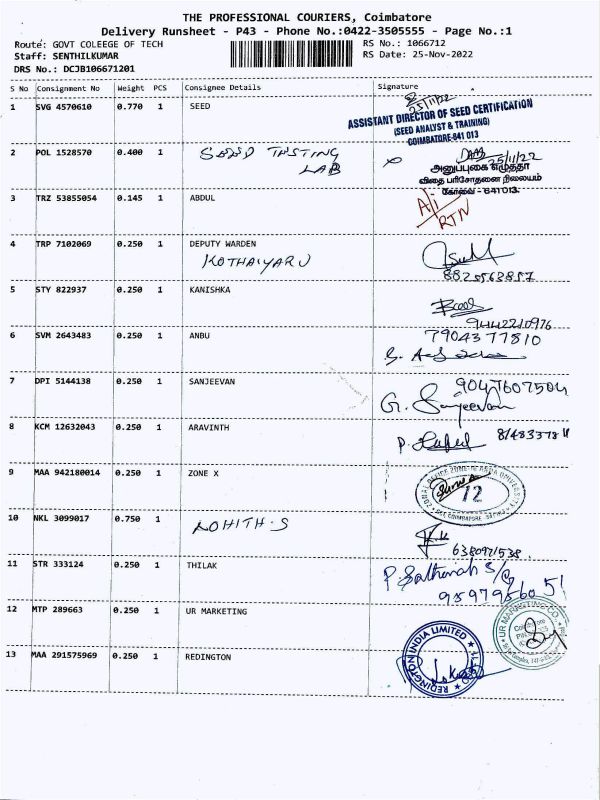 THE PROFESSIONAL COURIERS, Coimbatore
Delivery Runsheet - P43 - Phone No.:0422-3505555 - Page No.:1
Route: GOVT COLEEGE OF TECH
RS No.: 1066712
Staff: SENTHILKUMAR
RS Date: 25-Nov-2022
DRS No.: DCJB106671201
S No Consignment No Weight PCS Consignee Details Signature
1 SVG 4570610 0.770 1 SEED
25/11/22
ASSISTANT DIRECTOR OF SEED CERTIFICATION
(SEED ANALYST & TRAINING)
COIMBATORE-641 013
2 POL 1528570 0.400 1 SEED TESTING
LAB
25/11/22
அனுப்புகை எழுத்தர்
விதை பரிசோதனை நிலையம்
கோவை - 641 013.
3 TRZ 53855054 0.145 1 ABDUL
A/i
RTN
4 TRP 7102069 0.250 1 DEPUTY WARDEN
KOTHAIYARU
8825563857
5 STY 822937 0.250 1 KANISHKA
9442210976
6 SVM 2643483 0.250 1 ANBU
7904377810
7 DPI 5144138 0.250 1 SANJEEVAN
9047607504
G. Sanjeevan
8 KCM 12632043 0.250 1 ARAVINTH
9 MAA 942180014 0.250 1 ZONE X
12
10 NKL 3099017 0.750 1 ROHITH.S
6380971538
11 STR 333124 0.250 1 THILAK
12 MTP 289663 0.250 1 UR MARKETING
UR MARKETING CO.
13 MAA 291575969 0.250 1 REDINGTON
REDINGTON INDIA LIMITED